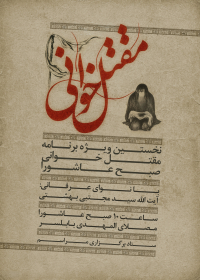 مقتل خوانی
نخستین ویژه برنامه
مقتل خوانی
صبح عاشورا
با نوای عرفانی:
آیت الله سید مجتبی بهشتی
ساعت ۱۰ صبح عاشورا
مصلای المهدی
ستاد برگزاری مراسم